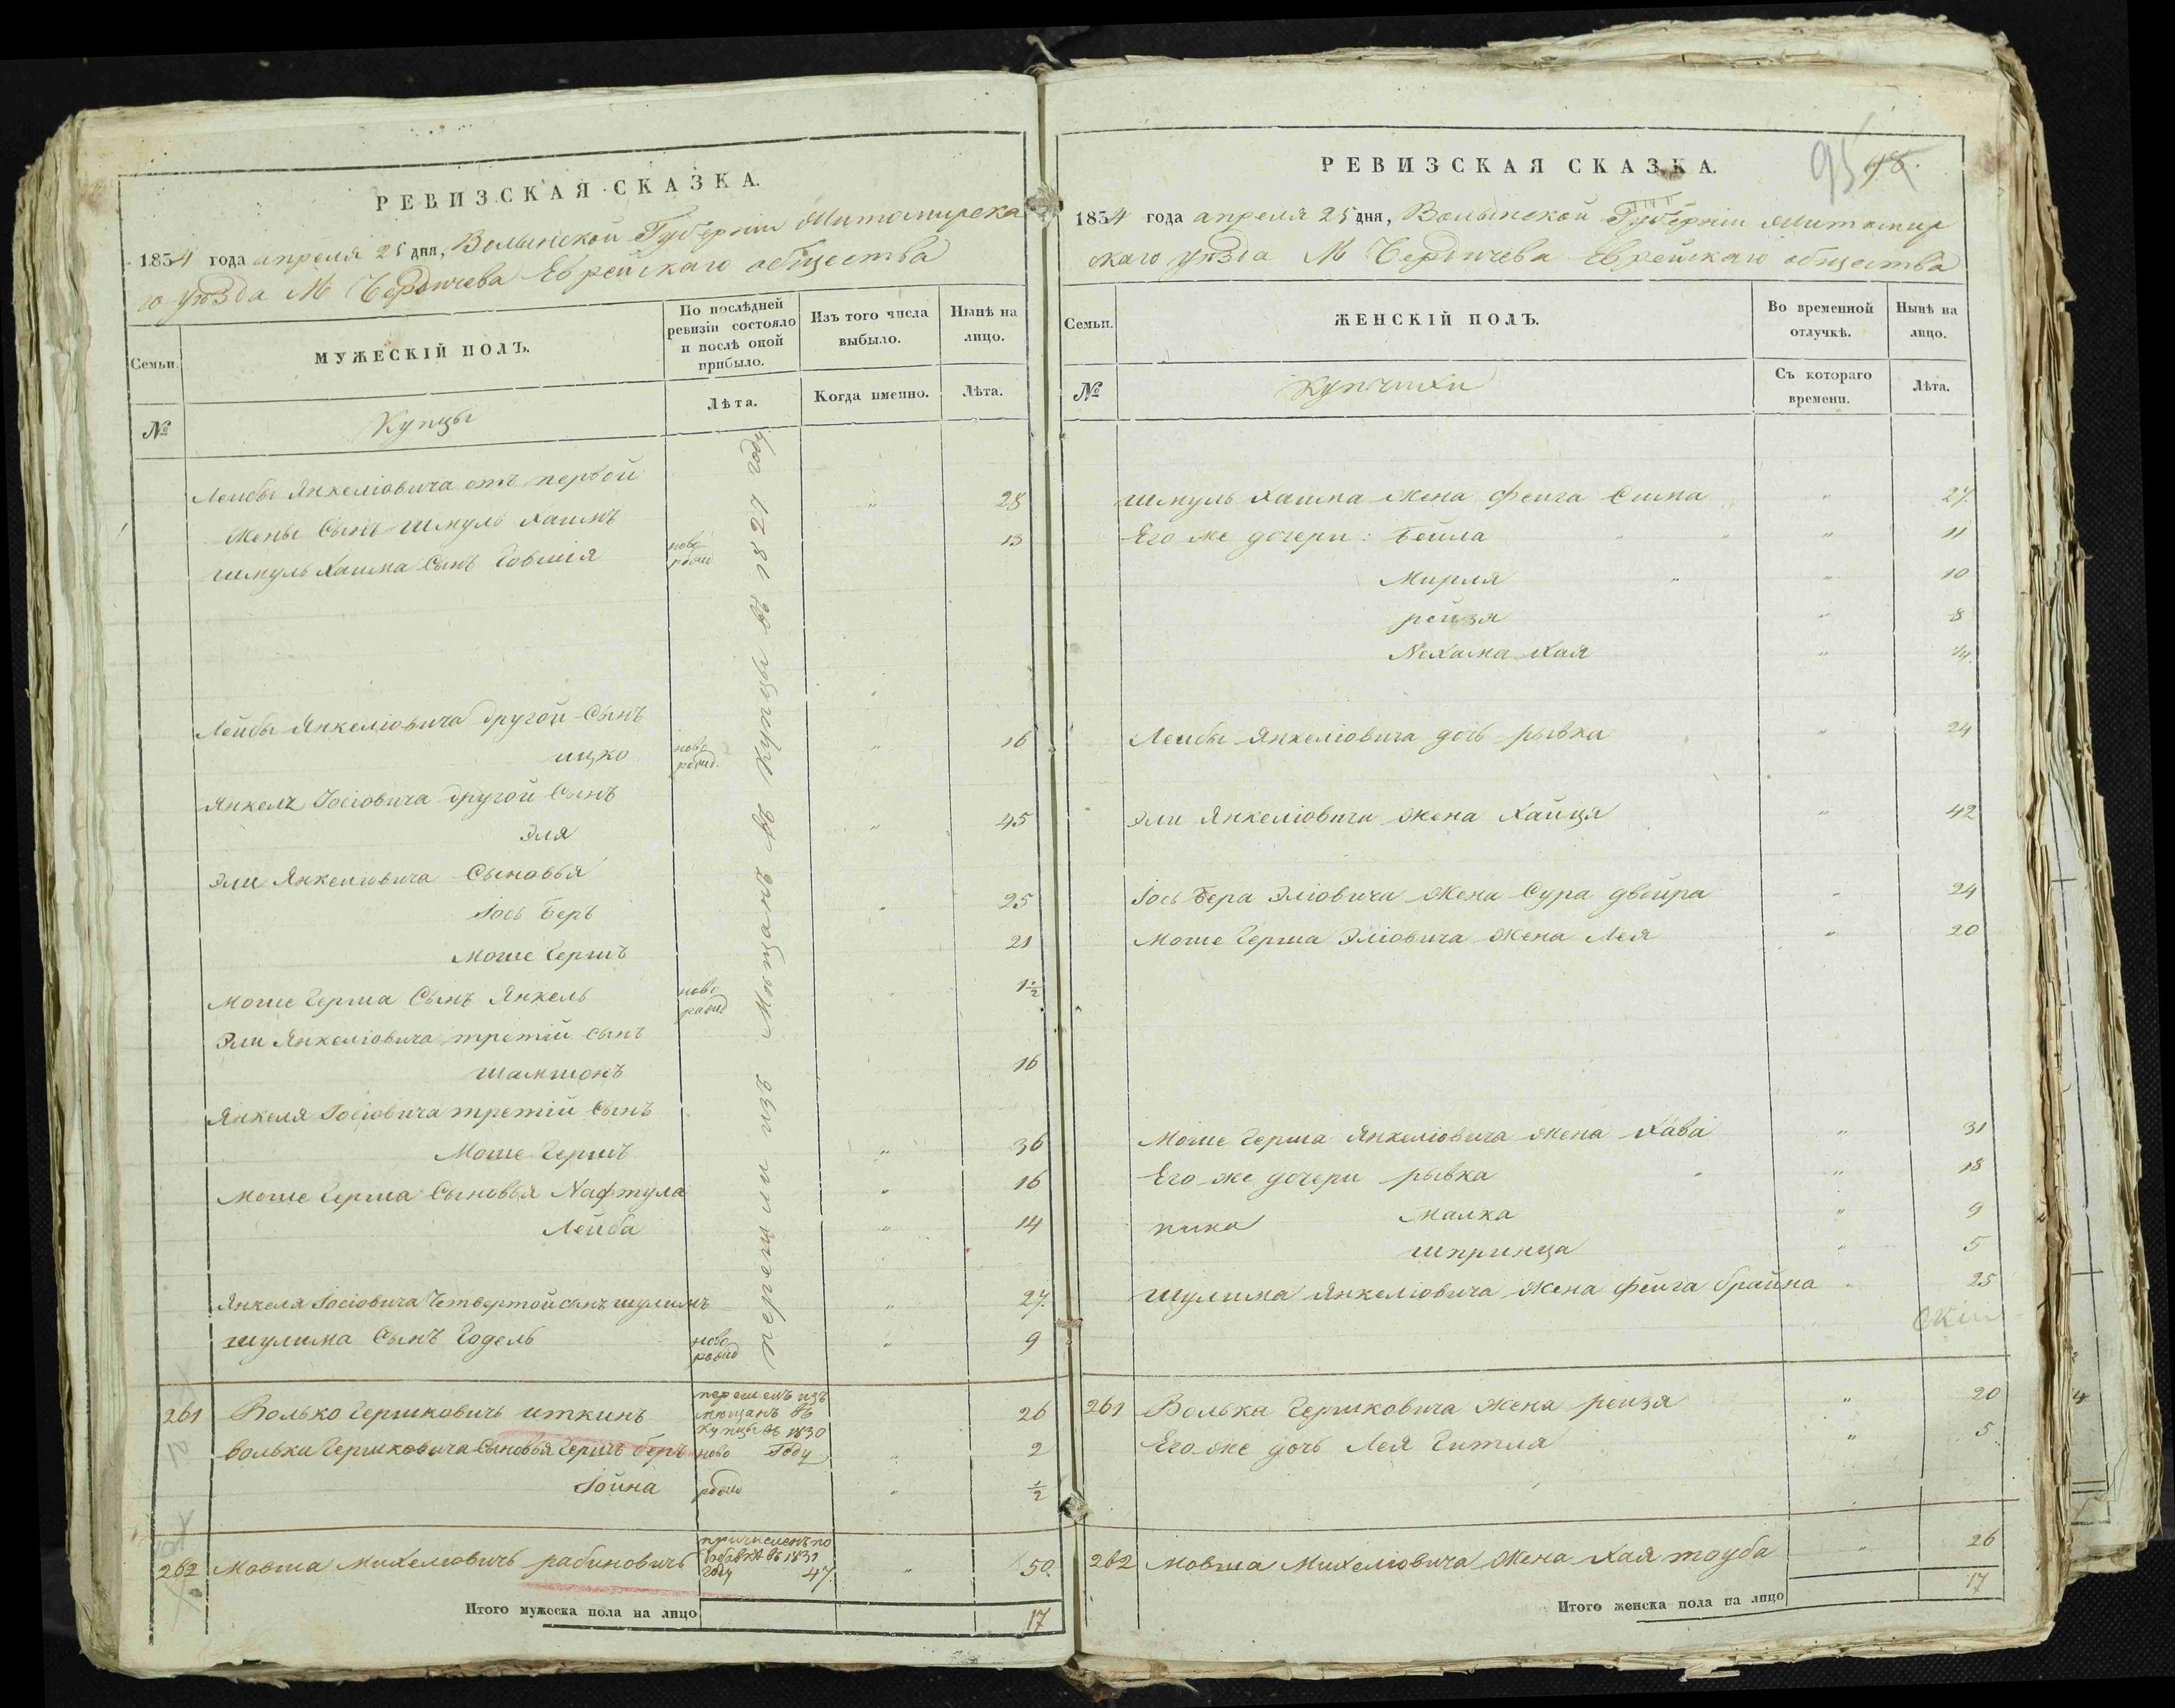 РЕВИЗСКАЯ СКАЗКА.
1834 года апреля 25 дня, Волынской Губерніи Житомирска
го уѣзда М Бердичева Еврейскаго общества
Семьи.
МУЖЕСКІЙ ПОЛЪ.
По послѣдней ревизіи состояло и послѣ оной прибыло.
Изъ того числа выбыло.
Нынѣ на лицо.
№
Купцы
Лѣта.
Когда именно.
Лѣта.
перешли изъ Мѣщанъ въ Купцы въ 1827 году
Лейбы Янкеліовича отъ первой
жены Сынъ Шмуль Хаимъ " 28
Шмуль Хаима Сынъ Говшія ново рожд 13
Лейбы Янкеліовича другой Сынъ
ицко ново рожд. " 16
Янкеля Іосіовича другой Сынъ
Эля " 45
Эли Янкеліовича Сыновья
Іось Беръ " 25
Моше Гершъ 21
Моше Герша Сынъ Янкель ново рожд " 1½
Эли Янкеліовича третій сынъ
Шамшонъ 16
Янкеля Іосіовича третій Сынъ
Моше Гершъ " 36
Моше Герша Сыновья Нафтула " 16
Лейба " 14
Янкеля Іосіовича Четвертой сынъ шулимъ " 27.
Шулима Сынъ Годель ново рожд " 9
261 Волько Гершковичъ иткинъ перешелъ изъ мѣщанъ въ Купцы въ 1830 Году 26
Волька Гершковича Сыновья Гершъ беръ ново " 2
Іойна рожд " ½
262 Мовша Михеліовичъ рабиновичъ причисленъ по въ 1831 году 47. " 50.
Итого мужеска пола на лицо 17
РЕВИЗСКАЯ СКАЗКА.
95
1834 года апреля 25 дня, Волынской Губерніи Житомир
скаго уѣзда М Бердичева Еврейскаго общества
Семьи.
ЖЕНСКІЙ ПОЛЪ.
Во временной отлучкѣ.
Нынѣ на лицо.
№
Купчихи
Съ котораго времени.
Лѣта.
Шмуль Хаима жена Фейга Сима " 27.
Его же дочери: Бейла " 11
Мирля " 10
рейзя " 8
Нехама Хая "
Лейбы Янкеліовича дочь рывка " 24
Эли Янкеліовича жена Хайця " 42
Іось Бера Эліовича жена Сура двойра " 24
Моше Герша Эліовича жена Лея " 20
Моше Герша Янкеліовича жена Хава " 31
Его же дочери рывка " 18
Малка " 9
шпринца " 5
Шулима Янкеліовича жена фейга брайна " 25
261 Волька Гершковича жена рейзя " 20
Его же дочь Лея Гитля " 5
262 Мовша Михеліовича жена Хая тоуба " 26
Итого женска пола на лицо 17